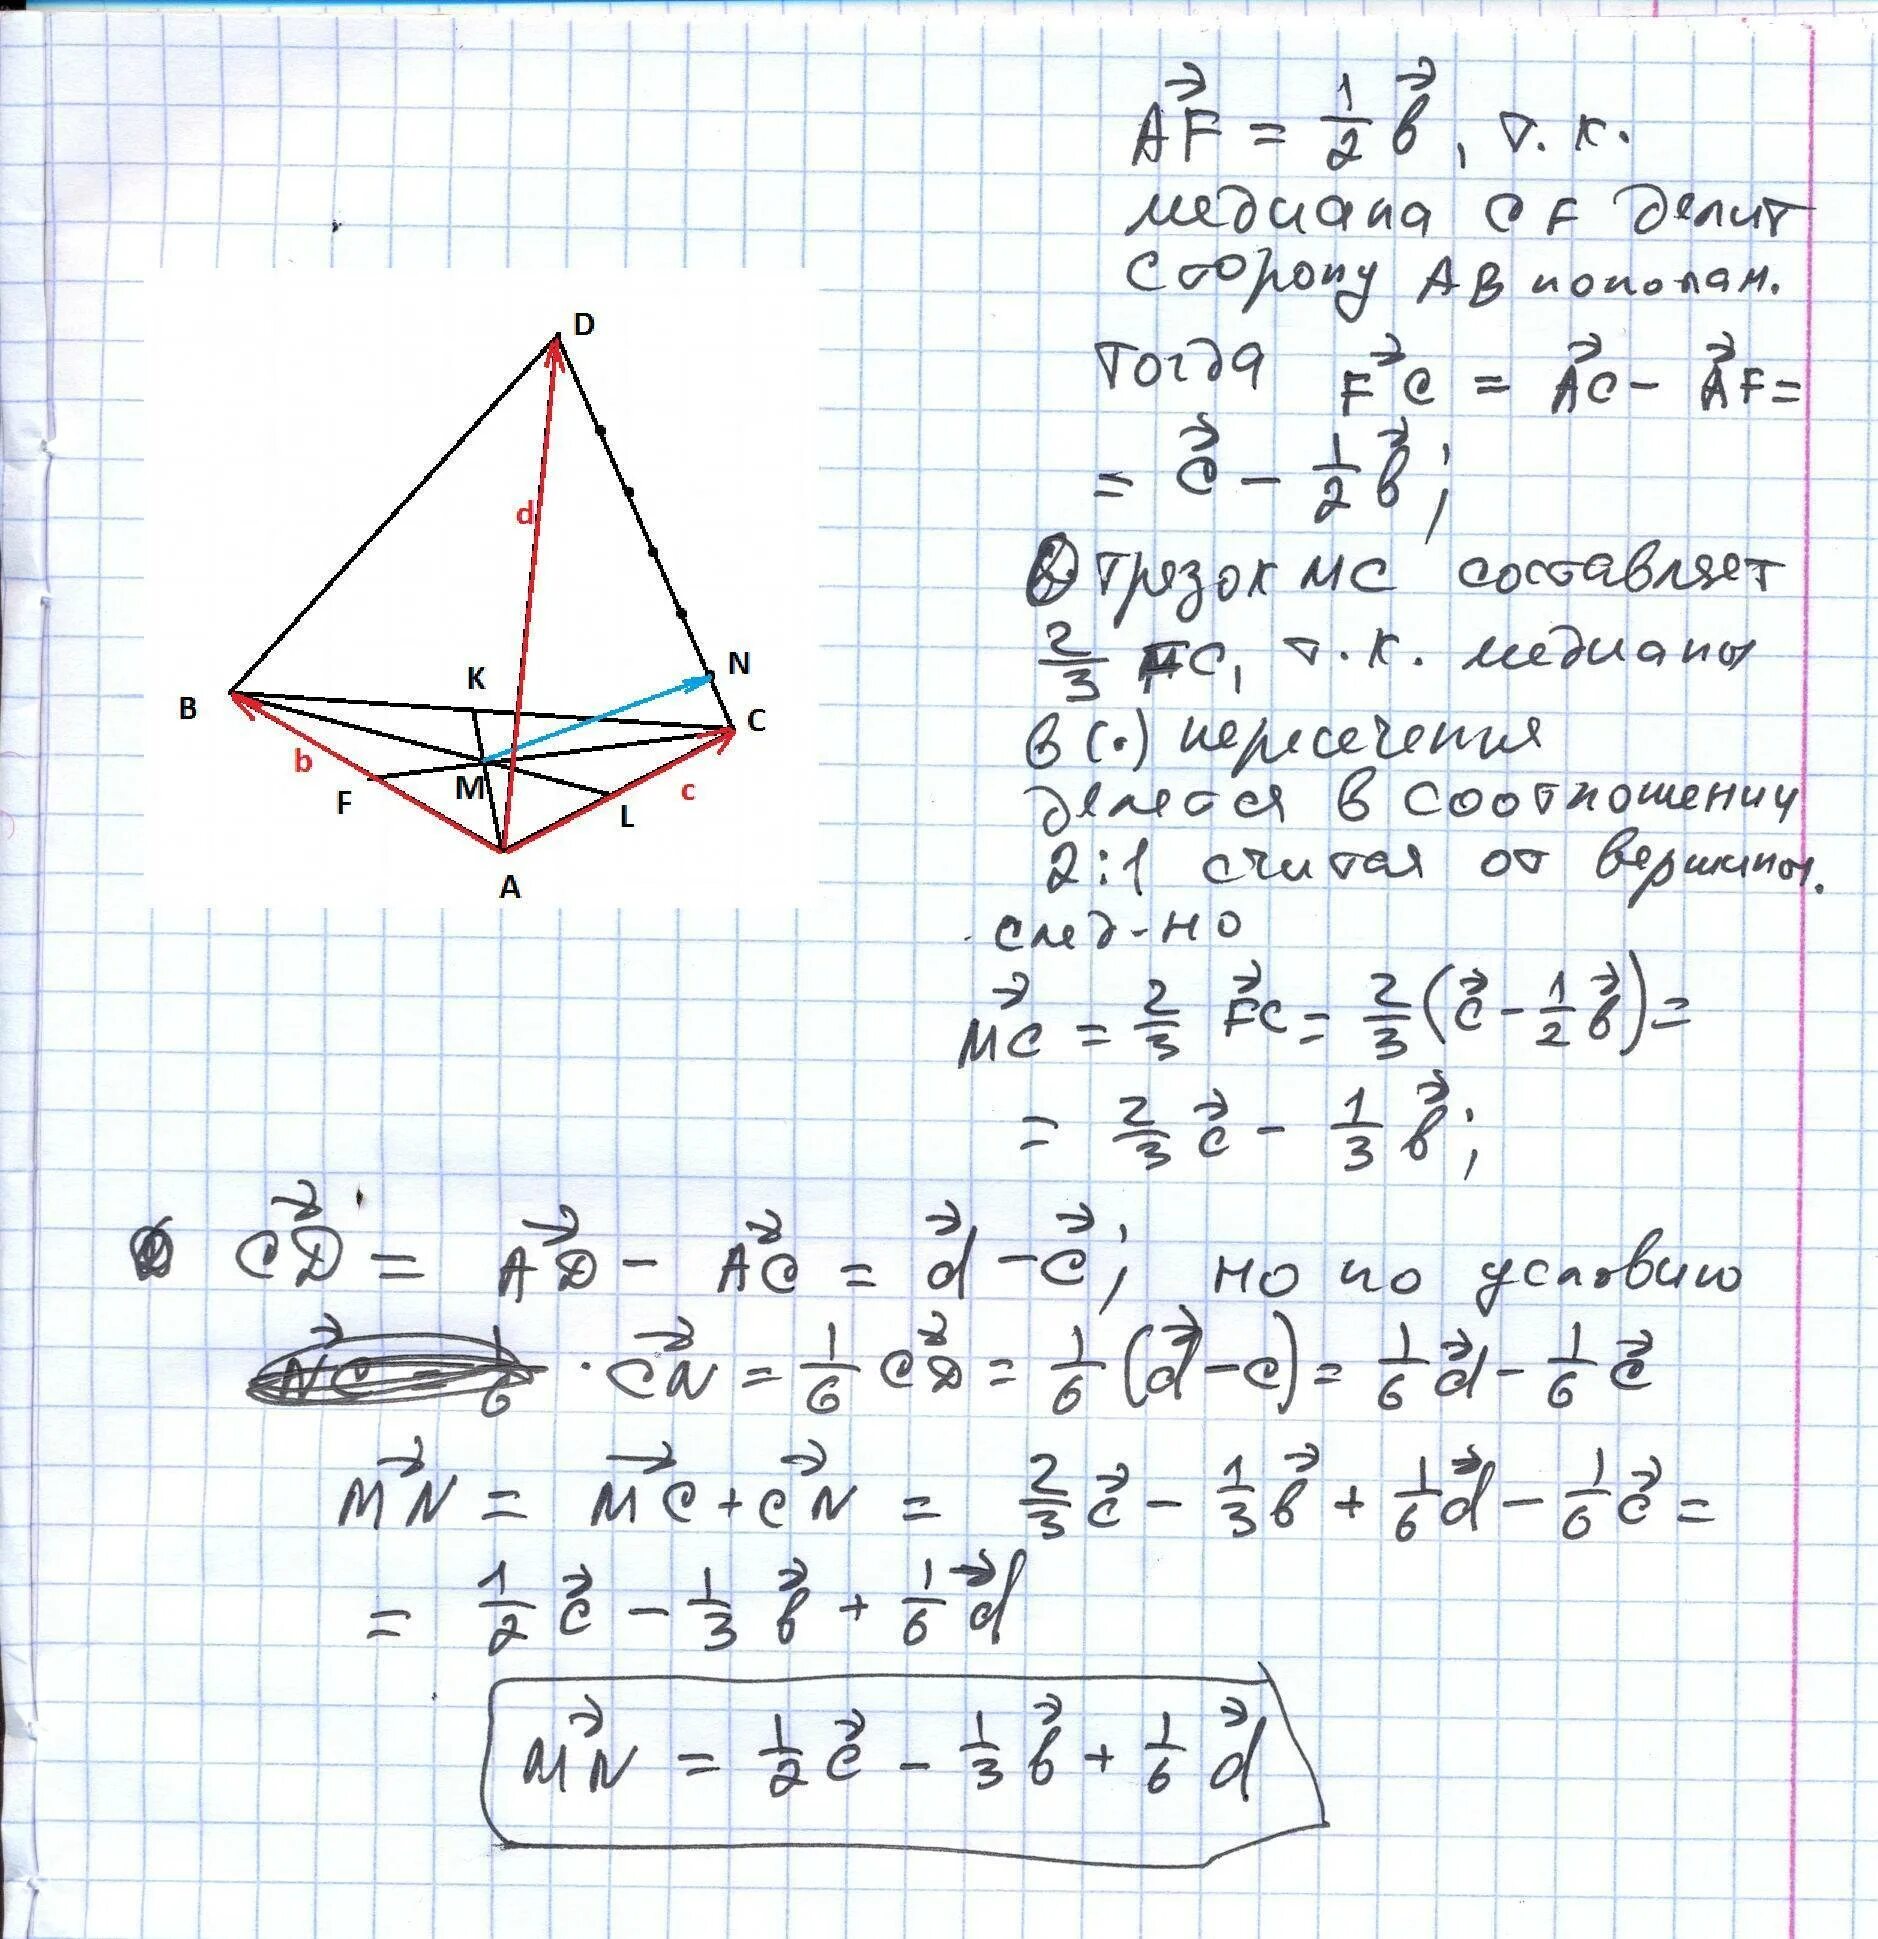 A⃗F = 1/2 b⃗, т.к.
медиана CF делит
сторону AB пополам.
тогда F⃗C = A⃗C - A⃗F =
= c⃗ - 1/2 b⃗;
Отрезок MC составляет
2/3 FC, т.к. медианы
в (·) пересечения
делятся в соотношении
2:1 считая от вершины.
след-но
M⃗C = 2/3 F⃗C = 2/3 (c⃗ - 1/2 b⃗) =
= 2/3 c⃗ - 1/3 b⃗;
D
d
N
K
B
C
b
M
c
F
L
A
C⃗D = A⃗D - A⃗C = d⃗ - c⃗; но по условию
C⃗N = 1/6 C⃗D = 1/6 (d⃗ - c) = 1/6 d⃗ - 1/6 c⃗
M⃗N = M⃗C + C⃗N = 2/3 c⃗ - 1/3 b⃗ + 1/6 d⃗ - 1/6 c⃗ =
= 1/2 c⃗ - 1/3 b⃗ + 1/6 d⃗
M⃗N = 1/2 c⃗ - 1/3 b⃗ + 1/6 d⃗